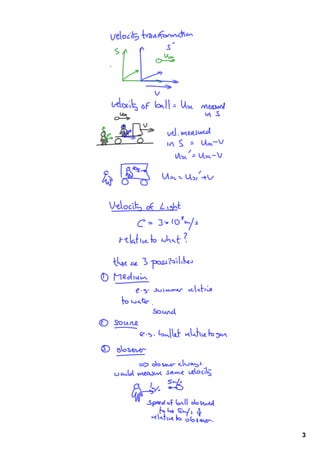 velocity transformation
S S'
ux
v
velocity of ball = ux measured
in S
ux
v
vel. measured
in S = ux-v
ux' = ux-v
ux = ux'+v
Velocity of Light
C = 3×10⁸m/s
relative to what?
there are 3 possibilities
① Medium
e.g. swimmer relative
to water.
sound
② source
e.g. bullet relative to gun
③ observer
⇒ observer always
would measure same velocity
5m/s
speed of ball observed
to be 5m/s if
relative to observer.
3